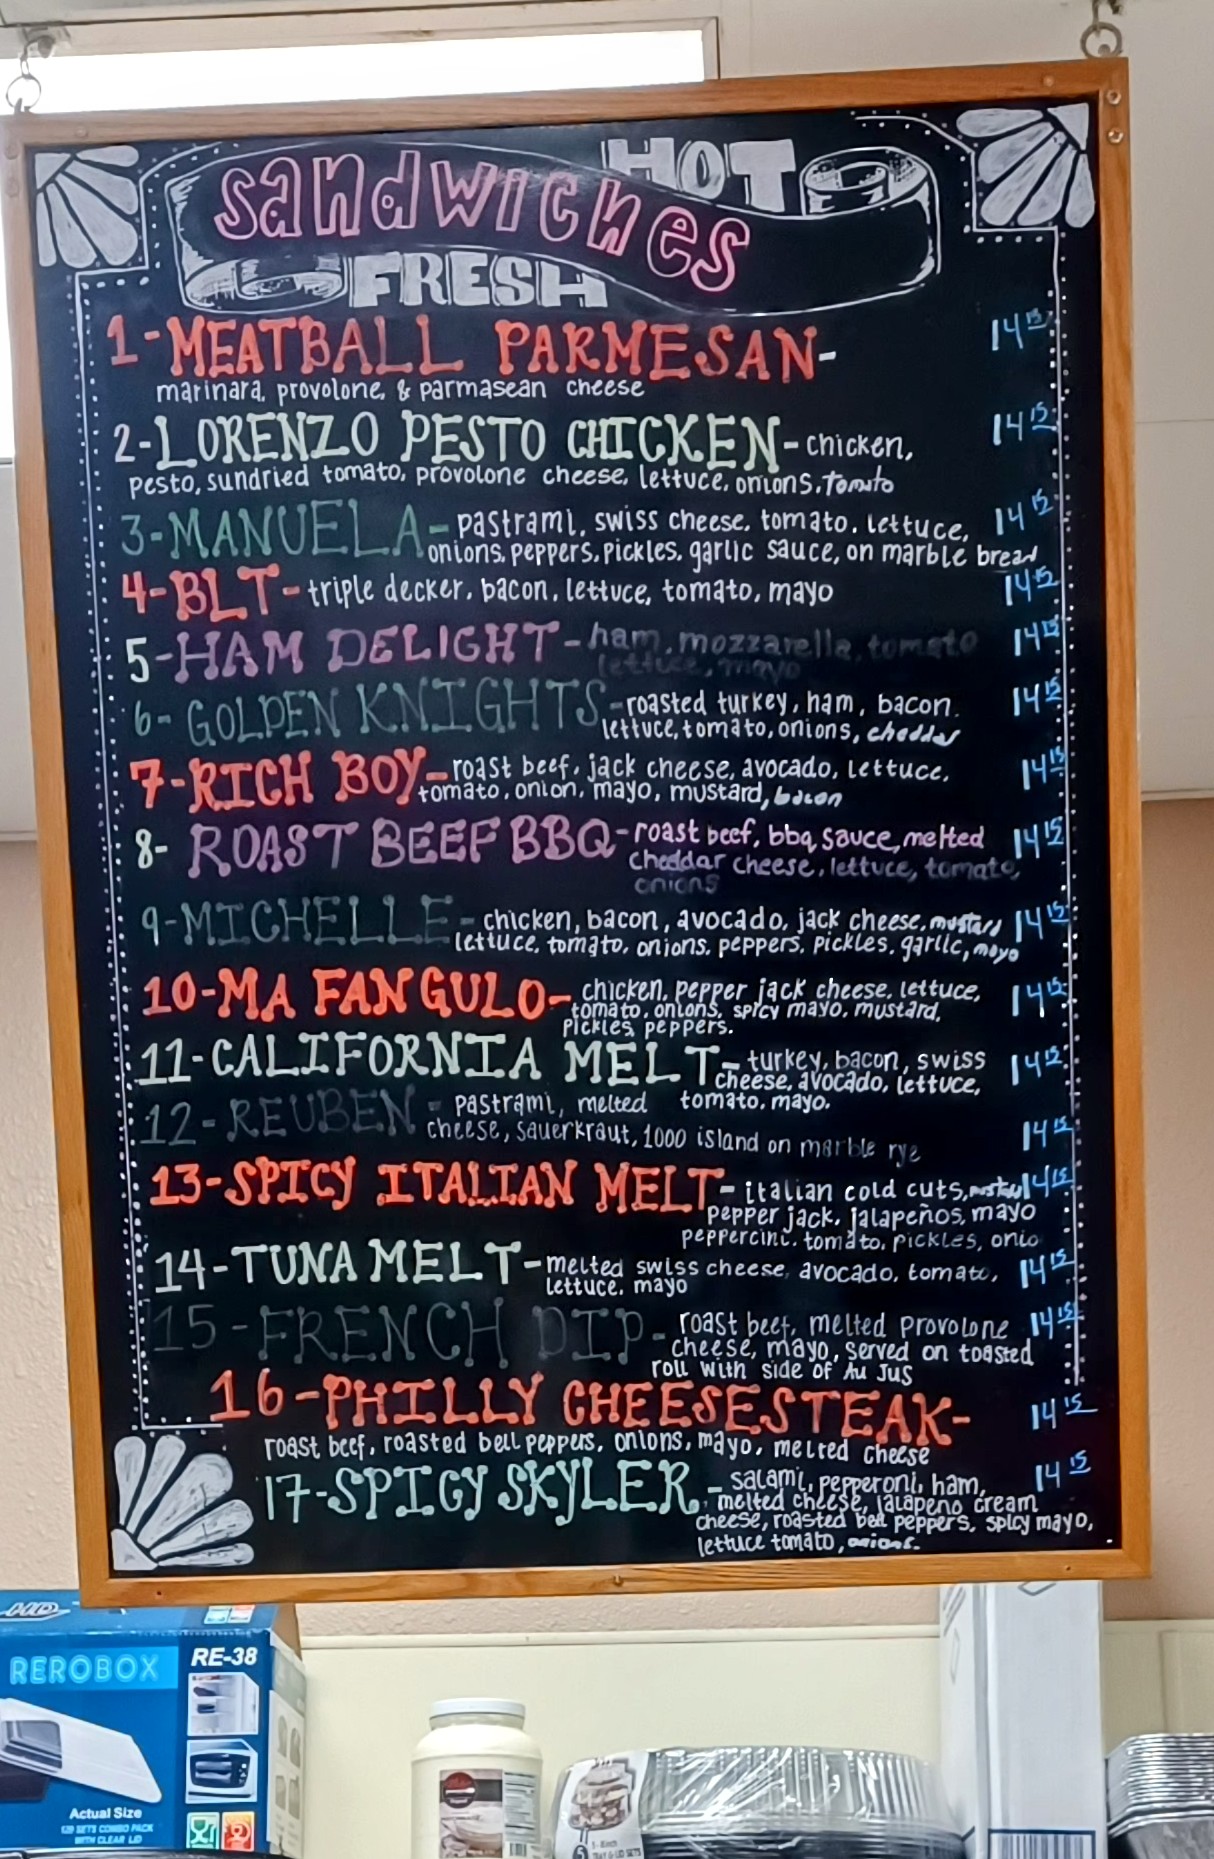 HOT
sandwiches
FRESH
1-MEATBALL PARMESAN- 14 15
marinara, provolone, & parmasean cheese
2-LORENZO PESTO CHICKEN- chicken, 14 15
pesto, sundried tomato, provolone cheese, lettuce, onions, tomato
3-MANUELA- pastrami, swiss cheese, tomato, lettuce, 14 15
onions, peppers, pickles, garlic sauce, on marble bread
4-BLT- triple decker, bacon, lettuce, tomato, mayo 14 15
5-HAM DELIGHT- ham, mozzarella, tomato 14 15
lettuce, mayo
6- GOLDEN KNIGHTS- roasted turkey, ham, bacon. 14 15
lettuce, tomato, onions, cheddar
7-RICH BOY- roast beef, jack cheese, avocado, lettuce, 14 15
tomato, onion, mayo, mustard, bacon
8- ROAST BEEF BBQ- roast beef, bbq sauce, melted 14 15
cheddar cheese, lettuce, tomato,
onions
9-MICHELLE- chicken, bacon, avocado, jack cheese, mustard 14 15
lettuce, tomato, onions, peppers, pickles, garlic, mayo
10-MA FANGULO- chicken, pepper jack cheese, lettuce, 14 15
tomato, onions, spicy mayo, mustard,
pickles, peppers.
11-CALIFORNIA MELT- turkey, bacon, swiss 14 15
cheese, avocado, lettuce,
tomato, mayo.
12-REUBEN- pastrami, melted 14 15
cheese, sauerkraut, 1000 island on marble rye
13-SPICY ITALIAN MELT- italian cold cuts, mustard 14 15
pepper jack, jalapeños, mayo
peppercinc, tomato, pickles, onio
14-TUNA MELT- melted swiss cheese, avocado, tomato, 14 15
lettuce, mayo
15-FRENCH DIP- roast beef, melted provolone 14 15
cheese, mayo, served on toasted
roll with side of Au Jus
16-PHILLY CHEESESTEAK- 14 15
roast beef, roasted bell peppers, onions, mayo, melted cheese
17-SPICY SKYLER- salami, pepperoni, ham, 14 15
melted cheese, jalapeno cream
cheese, roasted bell peppers, spicy mayo,
lettuce tomato, onions.
HD
REROBOX
RE-38
Actual Size
120 SETS COMBO PACK
WITH CLEAR LID